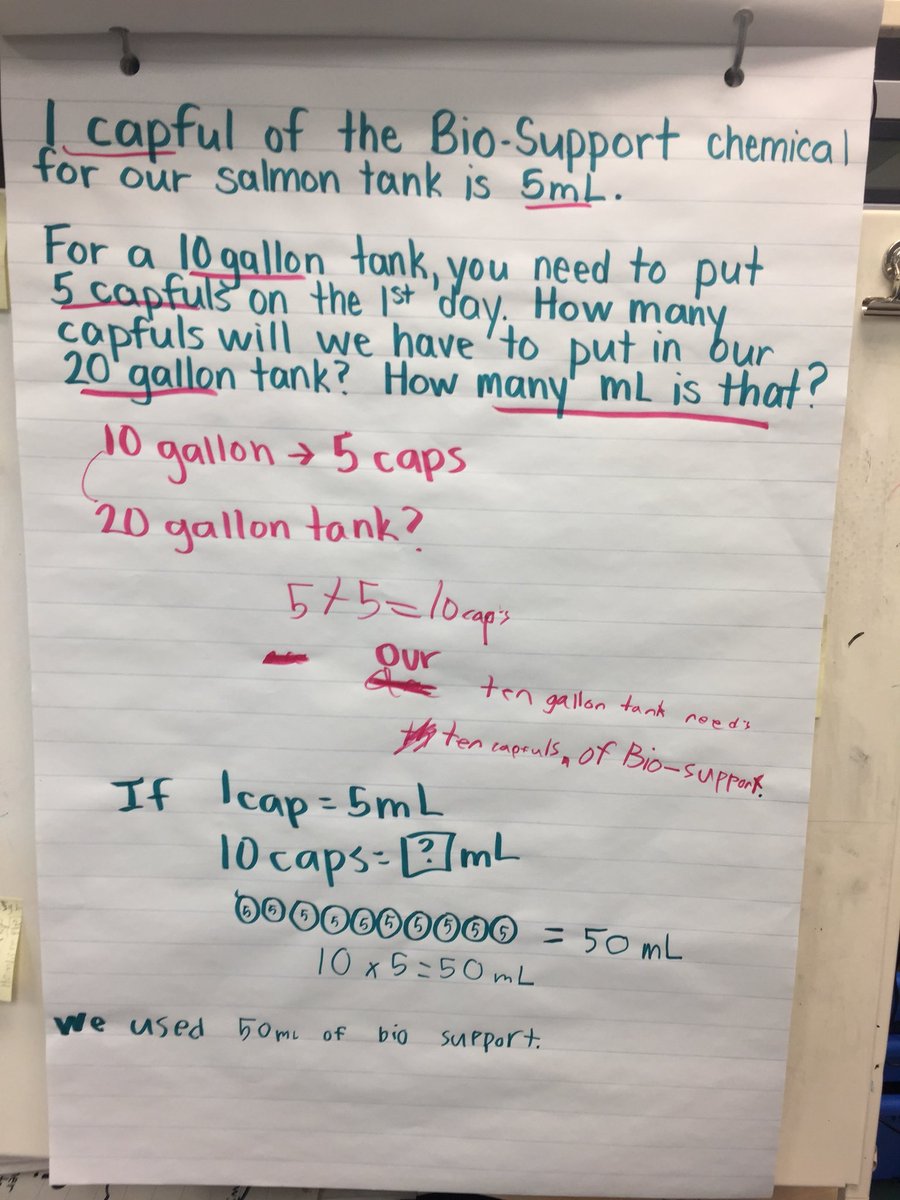 1 capful of the Bio-Support chemical
for our salmon tank is 5mL.
For a 10 gallon tank, you need to put
5 capfuls on the 1st day. How many
capfuls will we have to put in our
20 gallon tank? How many mL is that?
10 gallon → 5 caps
20 gallon tank?
5+5=10 cap's
our
ten gallon tank needs
ten capfuls, of Bio-support.
If 1cap = 5mL
10 caps = ? mL
5 5 5 5 5 5 5 5 5 5 = 50 mL
10 x 5 = 50 mL
We used 50mL of bio support.